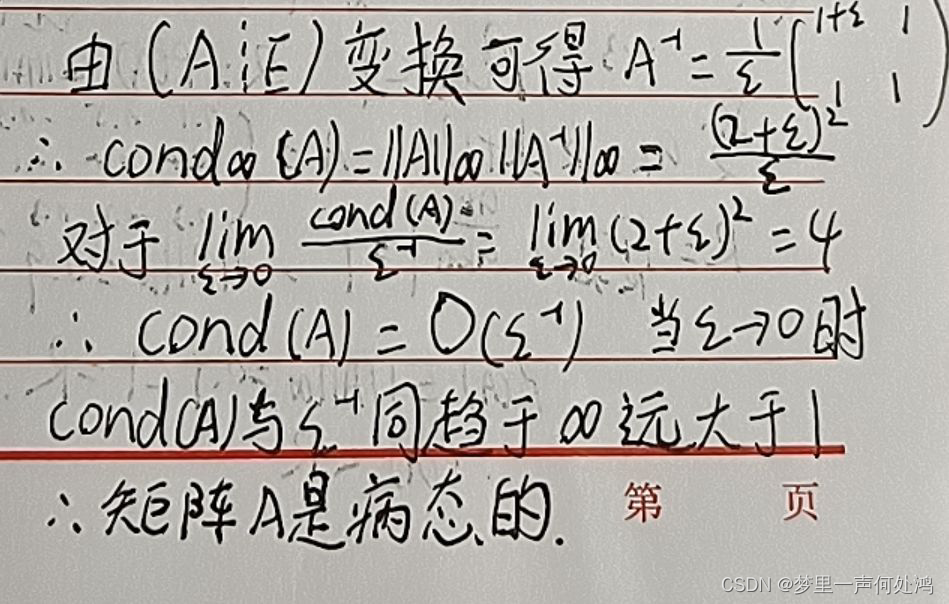 由(A⋮E)变换可得 A⁻¹ = 1/ε (1+ε 1
1 1)
∴ cond∞(A) = ||A||∞ ||A⁻¹||∞ = (2+ε)²/ε
对于 lim ε→0 cond(A)/ε⁻¹ = lim ε→0 (2+ε)² = 4
∴ cond(A) = O(ε⁻¹) 当ε→0时
cond(A)与ε⁻¹同趋于∞远大于1
∴矩阵A是病态的.
第 页
CSDN @梦里一声何处鸿